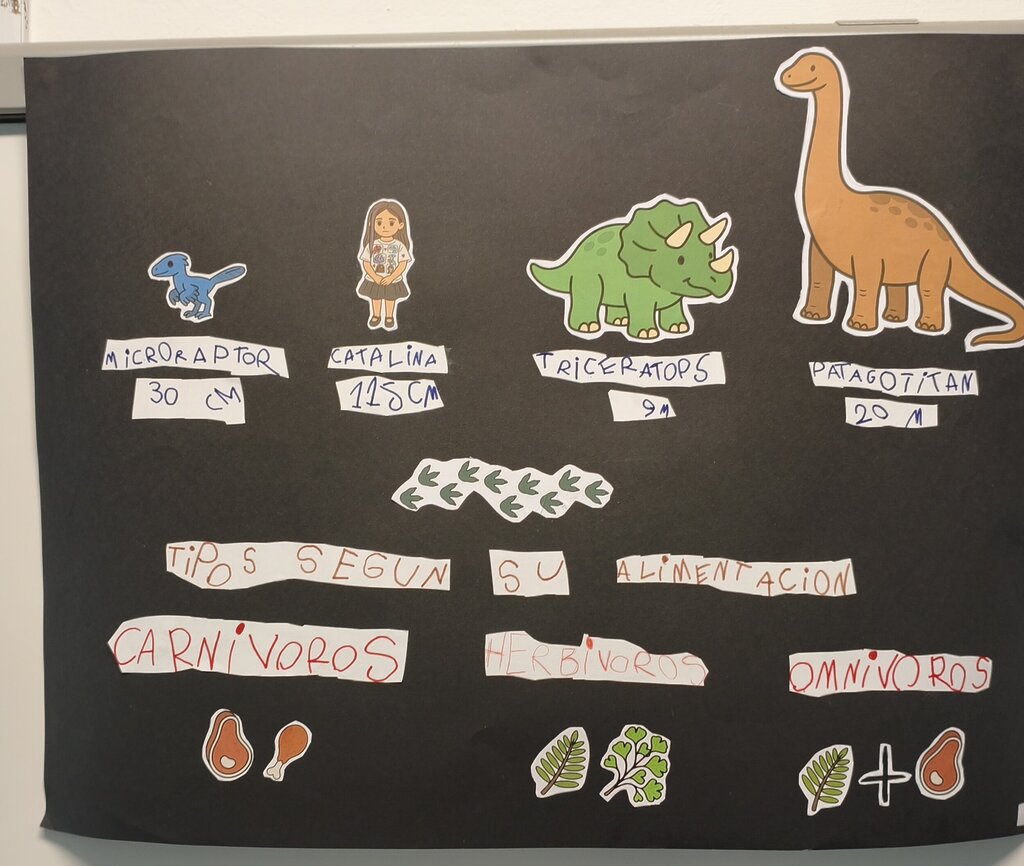 MiCRORAPTOR CATALiNA TRiCERATOPS PATAGOTiTAN
30 CM 115 CM 9M 20 M
TiPOS SEGUN SU ALiMENTACION
CARNiVOROS HERBiVOROS OMNiVOROS